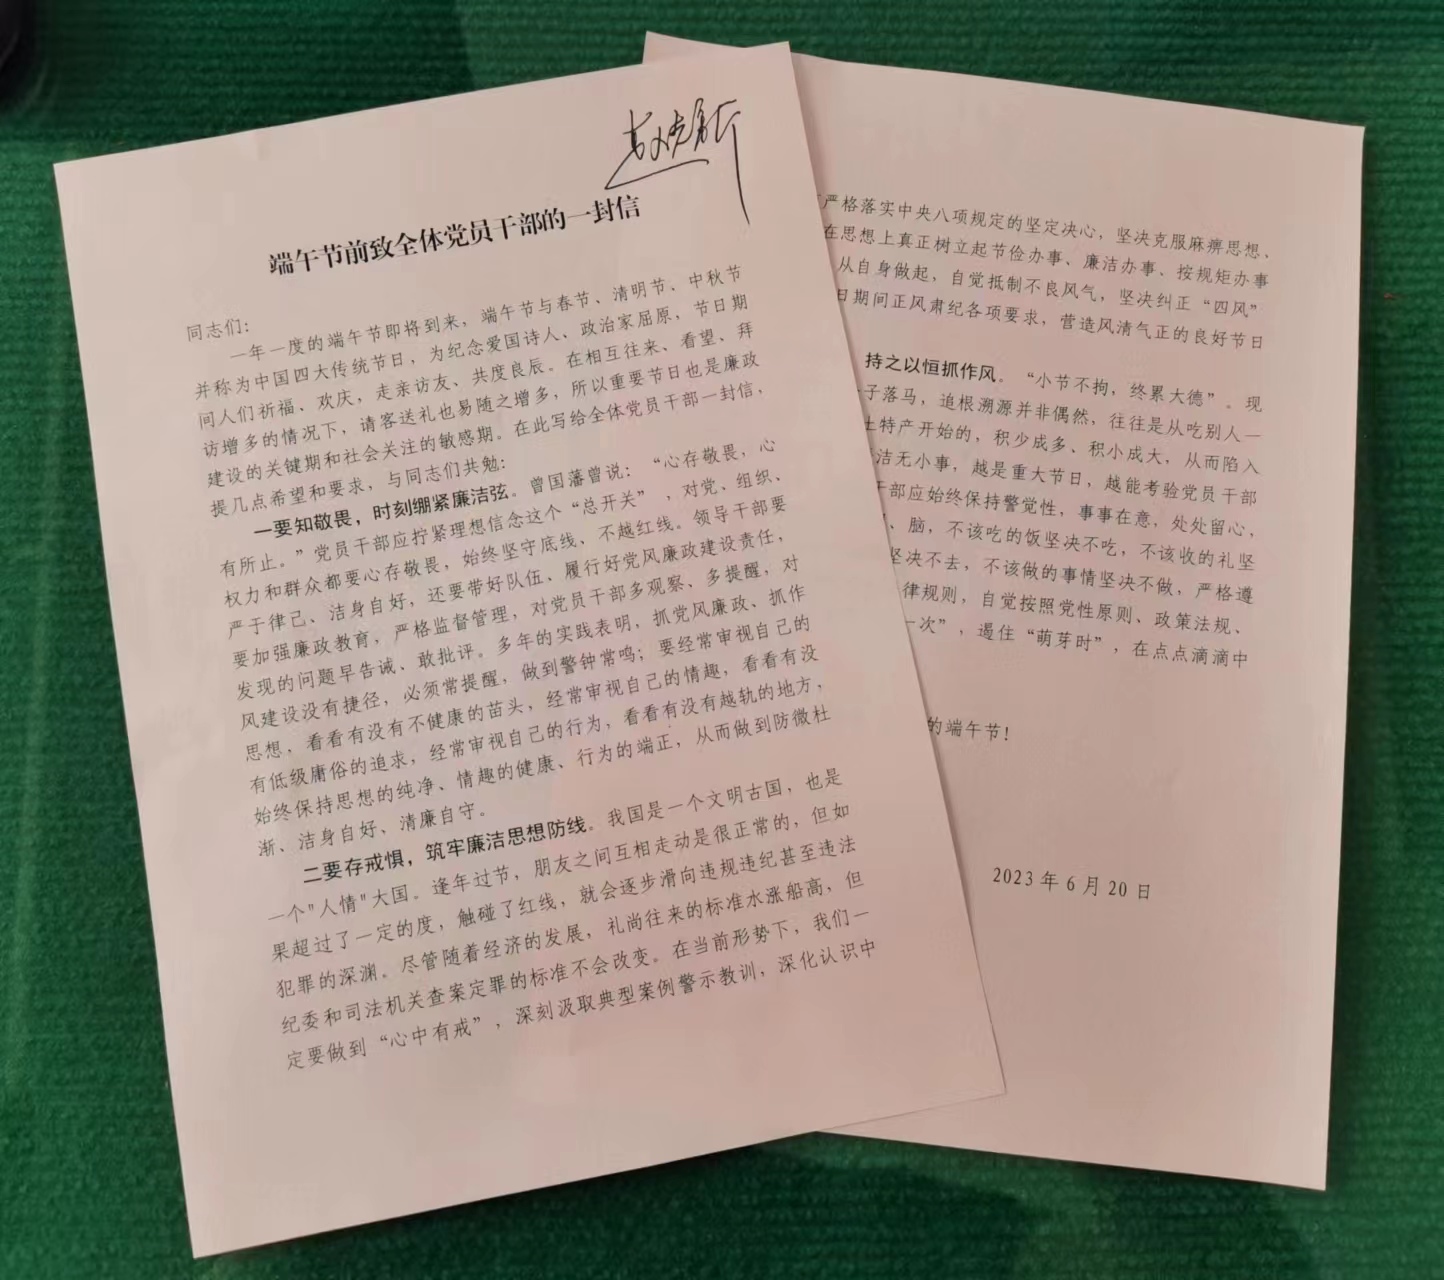 端午节前致全体党员干部的一封信
同志们：
一年一度的端午节即将到来，端午节与春节、清明节、中秋节
并称为中国四大传统节日，为纪念爱国诗人、政治家屈原，节日期
间人们祈福、欢庆，走亲访友、共度良辰。在相互往来、看望、拜
访增多的情况下，请客送礼也易随之增多，所以重要节日也是廉政
建设的关键期和社会关注的敏感期。在此写给全体党员干部一封信，
提几点希望和要求，与同志们共勉：
一要知敬畏，时刻绷紧廉洁弦。曾国藩曾说：“心存敬畏，心
有所止。”党员干部应拧紧理想信念这个“总开关”，对党、组织、
权力和群众都要心存敬畏，始终坚守底线、不越红线。领导干部要
严于律己、洁身自好，还要带好队伍、履行好党风廉政建设责任，
要加强廉政教育，严格监督管理，对党员干部多观察、多提醒，对
发现的问题早告诫、敢批评。多年的实践表明，抓党风廉政、抓作
风建设没有捷径，必须常提醒，做到警钟常鸣；要经常审视自己的
思想，看看有没有不健康的苗头，经常审视自己的情趣，看看有没
有低级庸俗的追求，经常审视自己的行为，看看有没有越轨的地方，
始终保持思想的纯净、情趣的健康、行为的端正，从而做到防微杜
渐、洁身自好、清廉自守。
二要存戒惧，筑牢廉洁思想防线。我国是一个文明古国，也是
一个"人情"大国。逢年过节，朋友之间互相走动是很正常的，但如
果超过了一定的度，触碰了红线，就会逐步滑向违规违纪甚至违法
犯罪的深渊。尽管随着经济的发展，礼尚往来的标准水涨船高，但
纪委和司法机关查案定罪的标准不会改变。在当前形势下，我们一
定要做到“心中有戒”，深刻汲取典型案例警示教训，深化认识中
严格落实中央八项规定的坚定决心，坚决克服麻痹思想、
在思想上真正树立起节俭办事、廉洁办事、按规矩办事
从自身做起，自觉抵制不良风气，坚决纠正“四风”
日期间正风肃纪各项要求，营造风清气正的良好节日
持之以恒抓作风。“小节不拘，终累大德”。现
子落马，追根溯源并非偶然，往往是从吃别人一
土特产开始的，积少成多、积小成大，从而陷入
洁无小事，越是重大节日，越能考验党员干部
干部应始终保持警觉性，事事在意，处处留心，
、脑，不该吃的饭坚决不吃，不该收的礼坚
坚决不去，不该做的事情坚决不做，严格遵
律规则，自觉按照党性原则、政策法规、
一次”，遏住“萌芽时”，在点点滴滴中
的端午节！
2023年6月20日